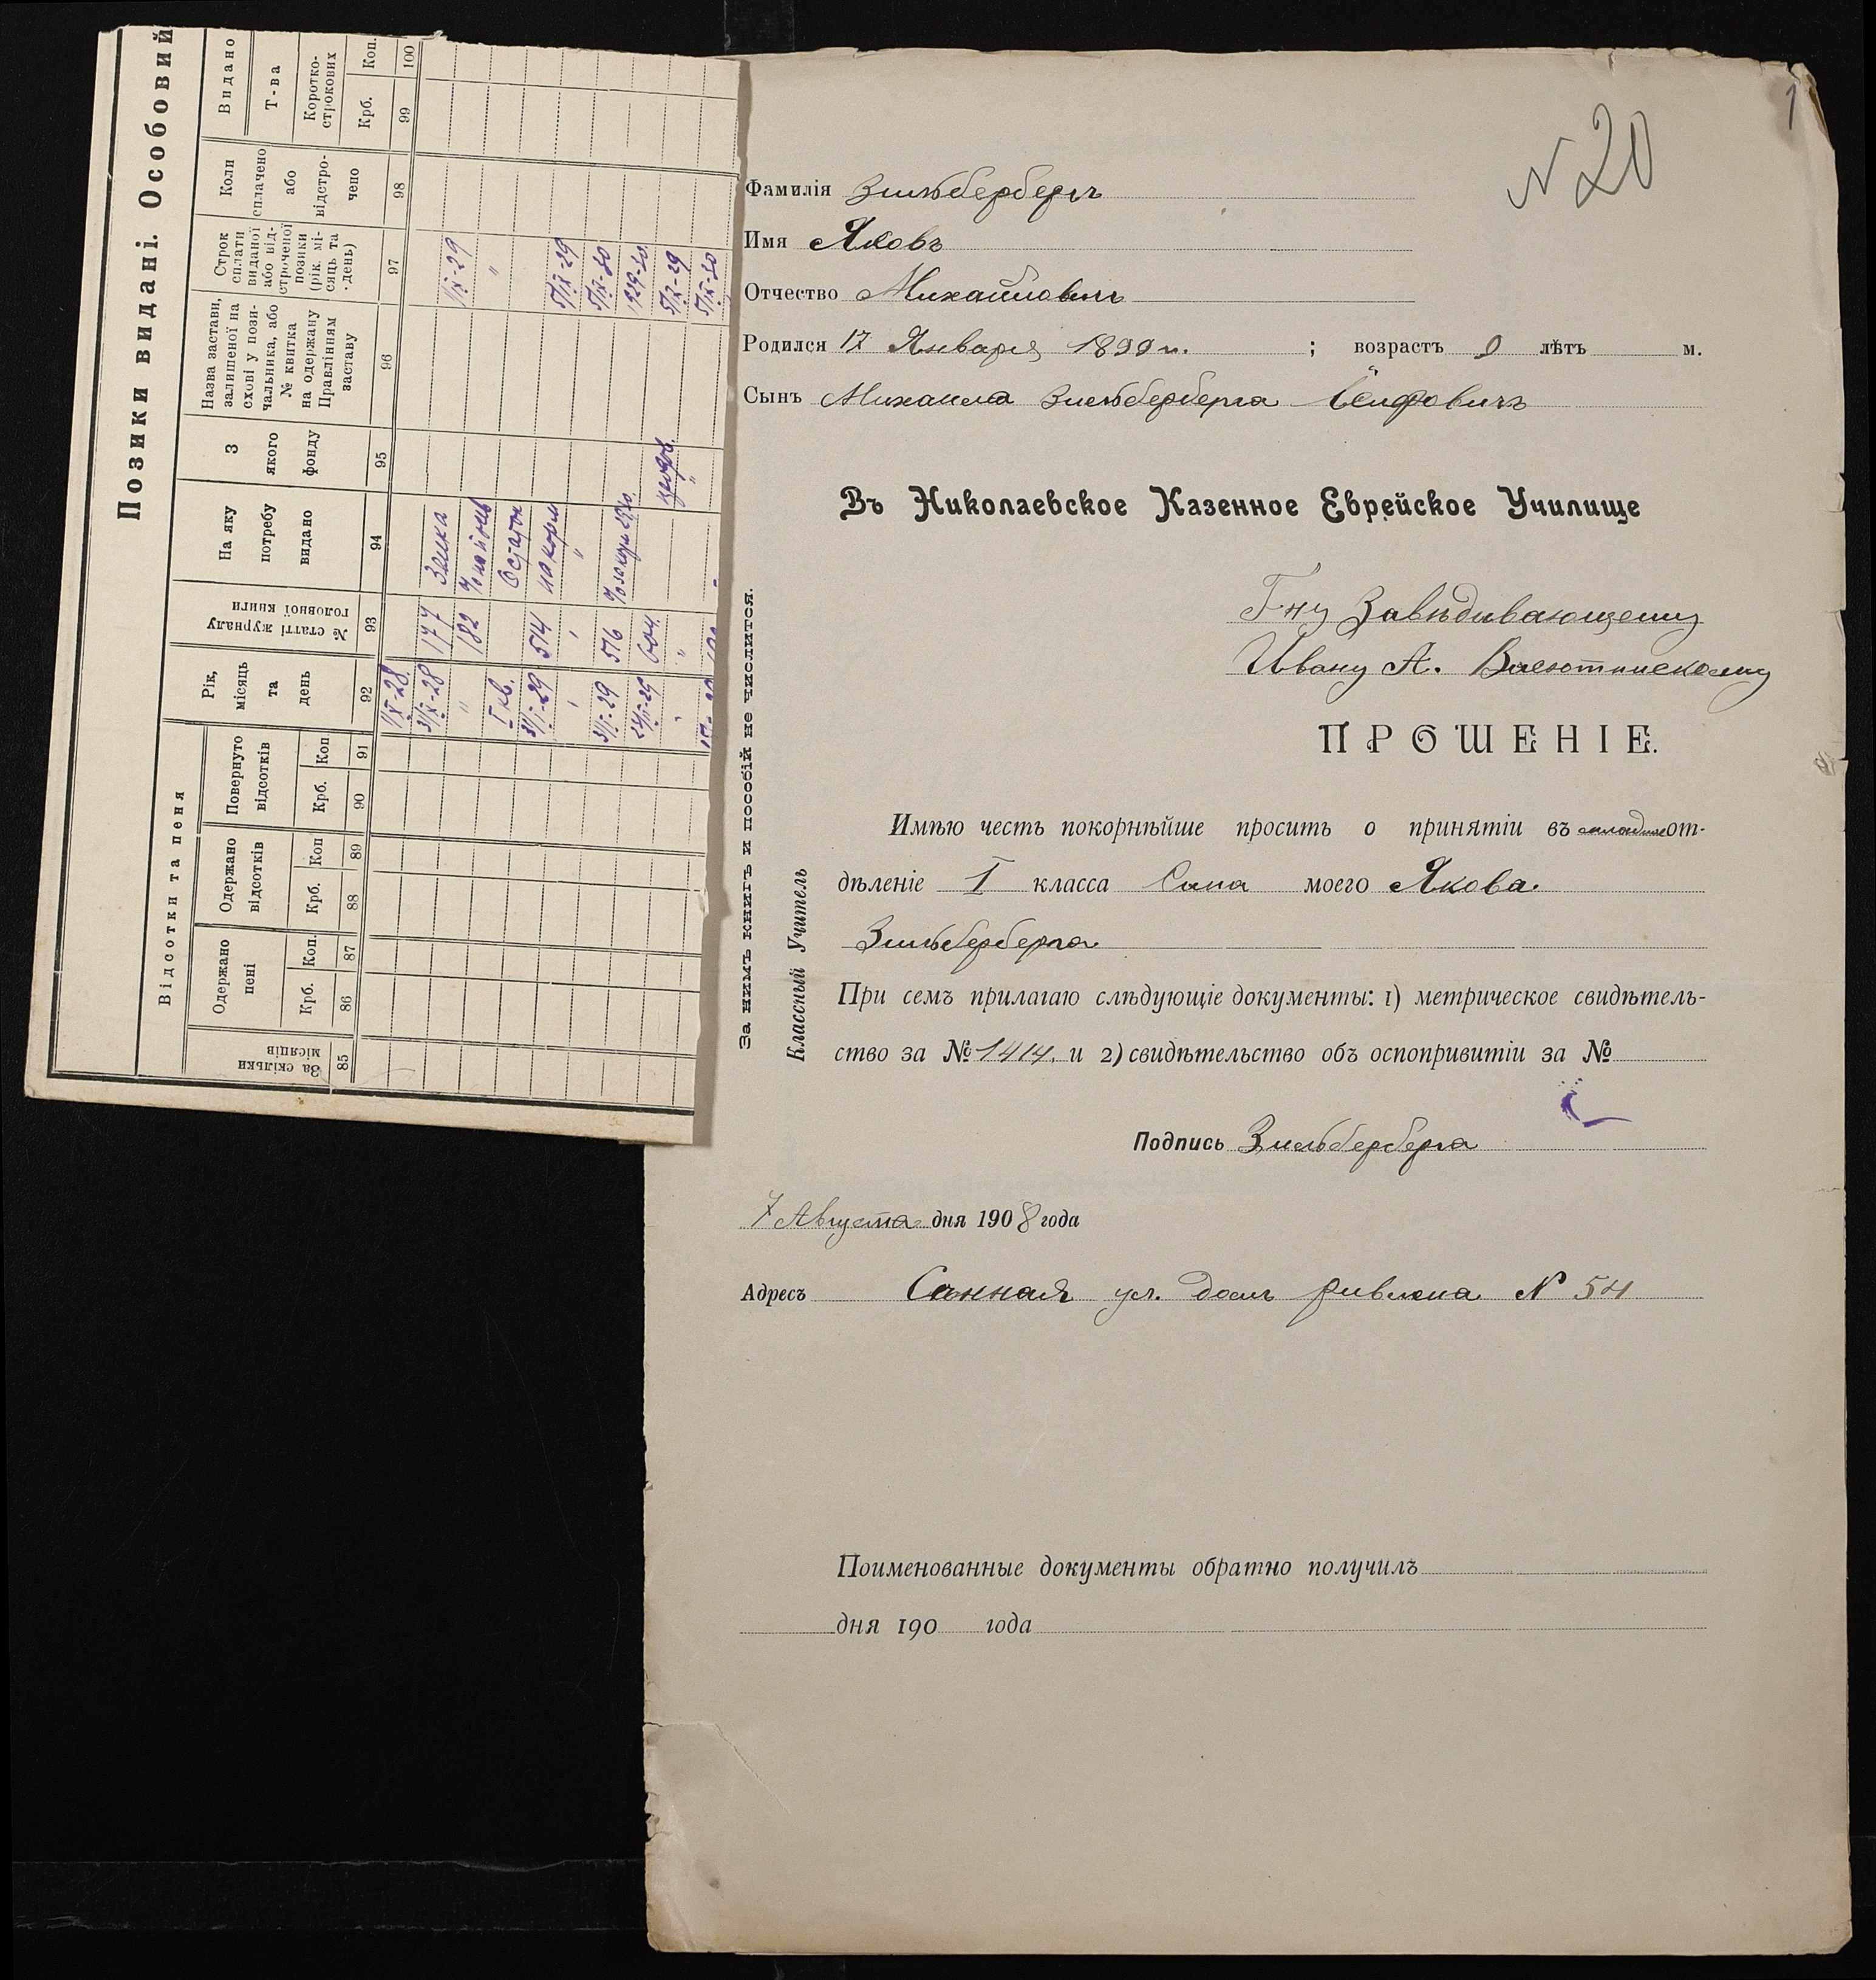 N 20
1
Фамилія Зильбербергъ
Имя Яковъ
Отчество Михайловичъ
Родился 17 Января 1899 г. ; возрастъ 9 лѣтъ м.
Сынъ Михаила Зильберберга
Въ Николаевское Казенное Еврейское Училище
Г-ну Завѣдивающему
Ивану А.
ПРОШЕНІЕ.
Имѣю честь покорнѣйше просить о принятіи въ младшее от-
дѣленіе I класса Сына моего Якова.
Зильберберга
При семъ прилагаю слѣдующіе документы: 1) метрическое свидѣтель-
ство за № 1414. и 2) свидѣтельство объ оспопривитіи за №
Подпись Зильберберга
7 Августа дня 1908 года
Адресъ Сѣнная ул. домъ Ривлина N 54
Поименованные документы обратно получилъ
дня 190 года
За нимъ книгъ и пособій не числится.
Классный Учитель
Позики видані. Особовий
Відсотки та пеня
За скільки місяців
85
Одержано пені
Крб. Коп.
86 87
Одержано відсотків
Крб. Коп
88 89
Повернуто відсотків
Крб. Коп
90 91
Рік, місяць та день
92
№ статті журналу головної книги
93
На яку потребу видано
94
З якого фонду
95
Назва застави, залишеної на схові у позичальника, або № квитка на одержану Правлінням заставу
96
Строк сплати виданої або відстроченої позики (рік, місяць та день)
97
Коли сплачено або відстрочено
98
Видано
Т-ва
Короткострокових
Крб. Коп.
99 100
1/X-28
31/X-28 177 1/IX-29
" 182 "
I кв. Остаток
31/I-29 574 на корм 5/IX-29
31/I-29 576 1929-30.
604 5/IX-29